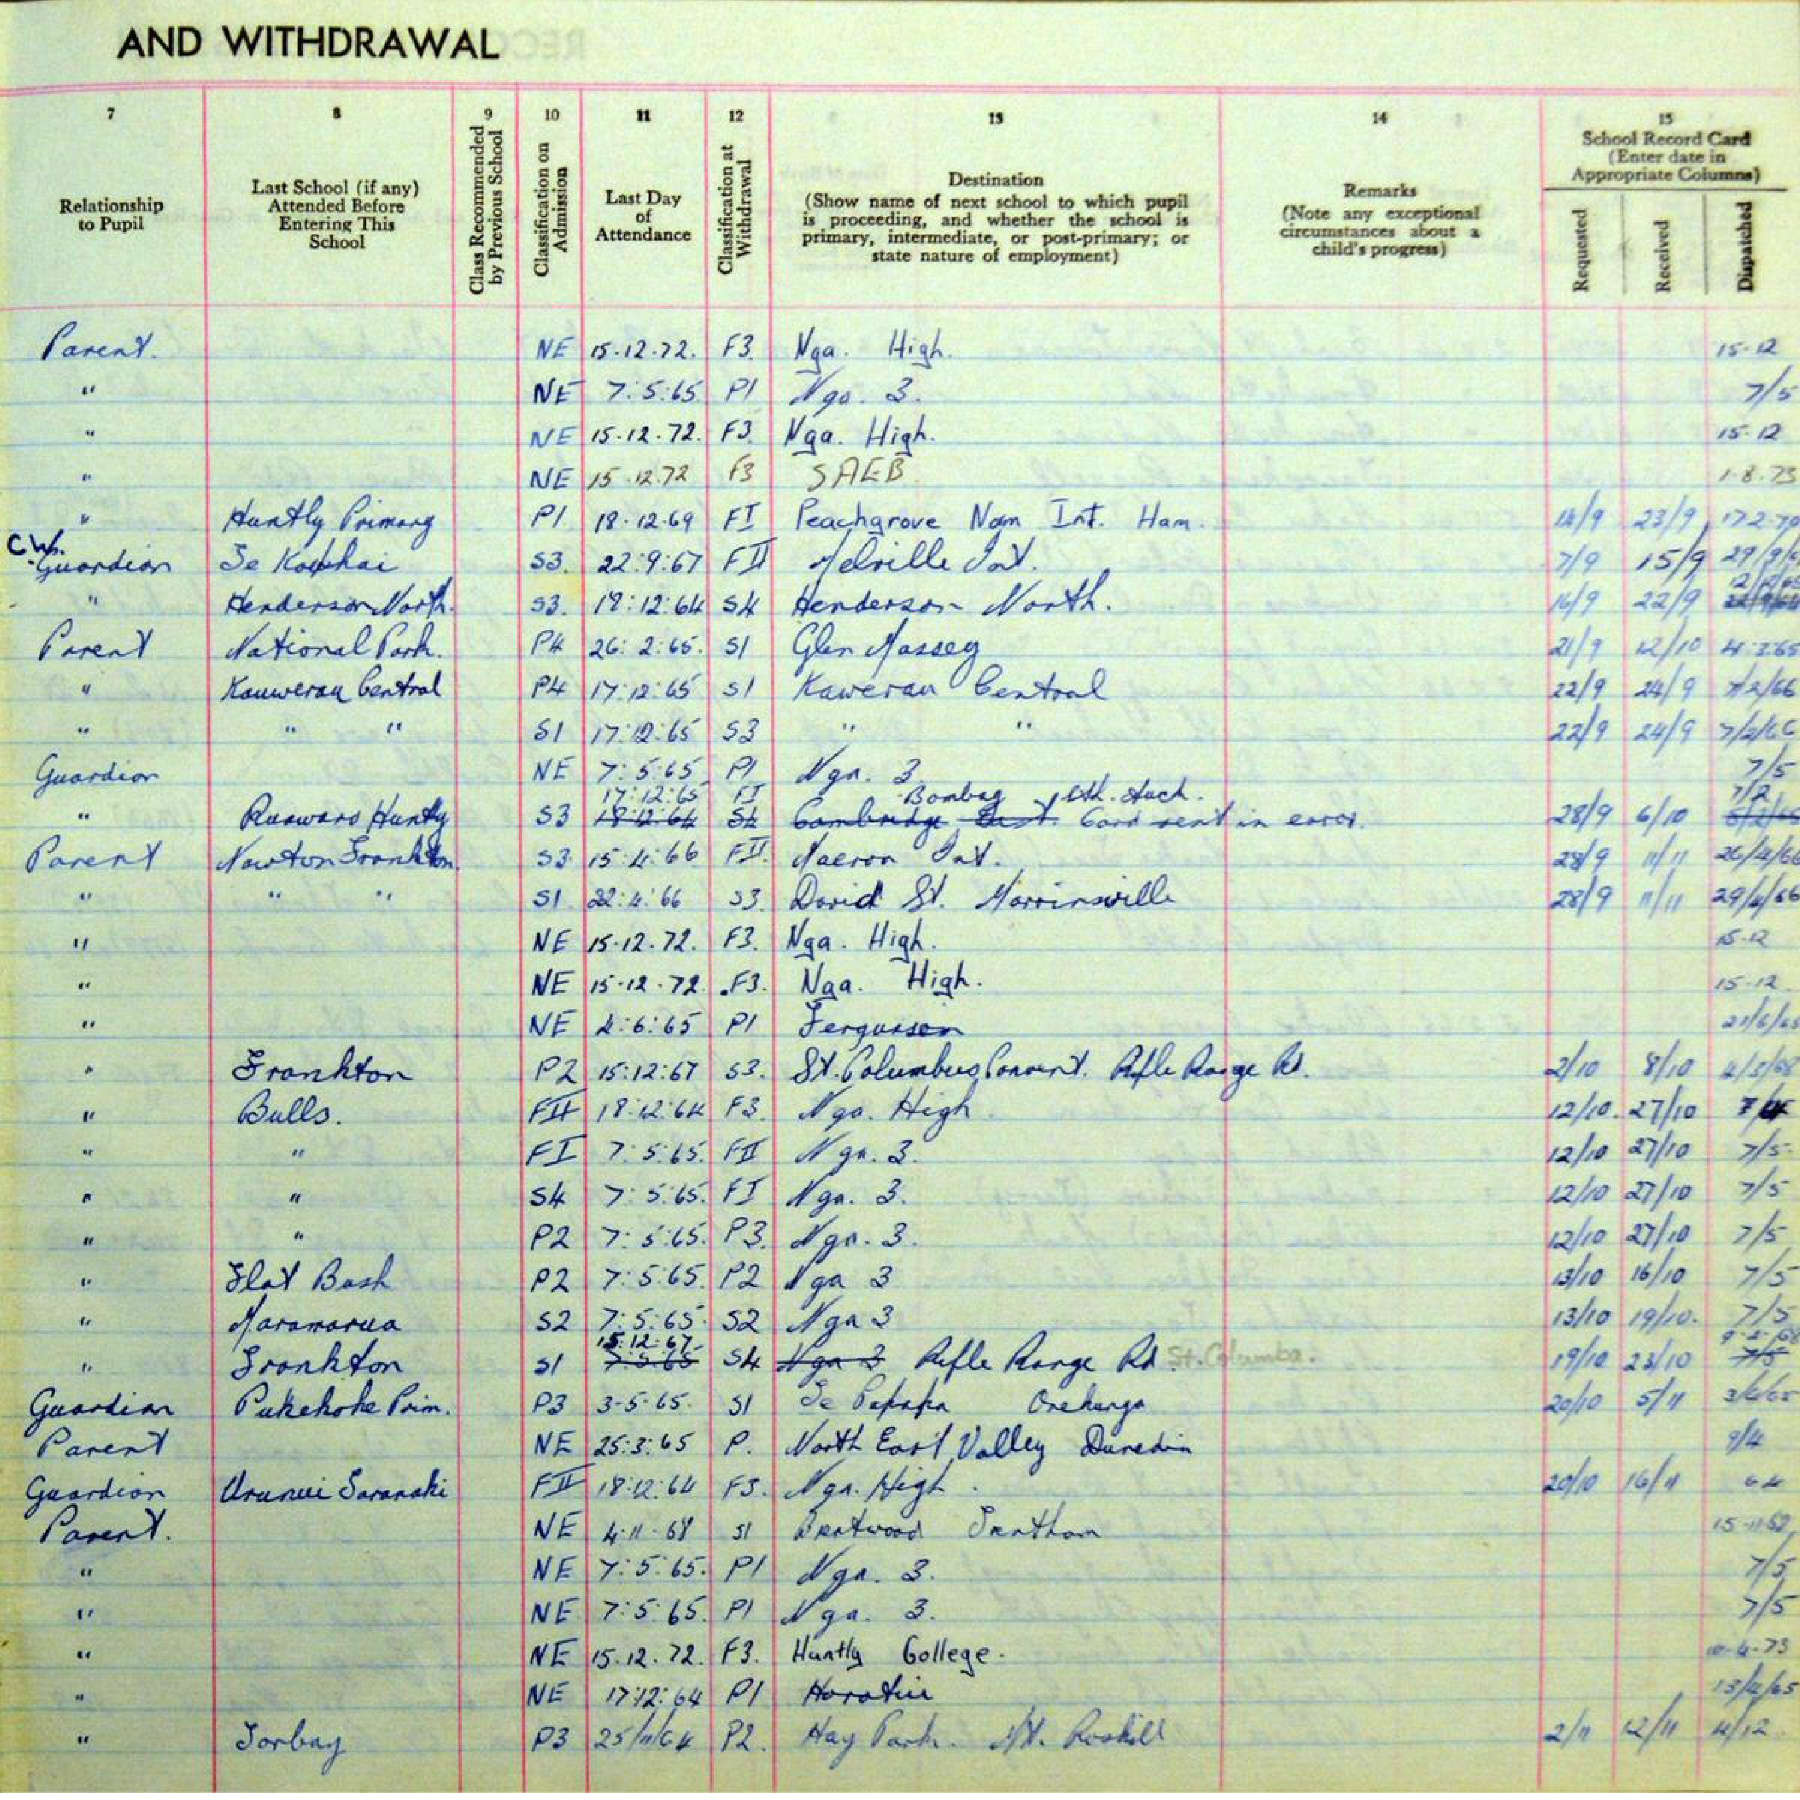 AND WITHDRAWAL
7 8 9 10 11 12 13 14 15
Relationship to Pupil
Last School (if any) Attended Before Entering This School
Class Recommended by Previous School
Classification on Admission
Last Day of Attendance
Classification at Withdrawal
Destination
(Show name of next school to which pupil is proceeding, and whether the school is primary, intermediate, or post-primary; or state nature of employment)
Remarks
(Note any exceptional circumstances about a child's progress)
School Record Card
(Enter date in Appropriate Columns)
Requested Received Dispatched
Parent. NE 15-12-72. F3. Nga. High. 15-12
" NE 7:5:65 P1 Nga. 3. 7/5
" NE 15-12-72. F3. Nga. High. 15-12
" NE 15-12.72 F3 SAEB 1-8-73
" Huntly Primary P1 18-12-69 FI Peachgrove Nom Int. Ham. 14/9 23/9 17.2.70
C.W. Guardian Te Kowhai S3. 22:9:67 FII Melville Int. 7/9 15/9
" Henderson North. S3. 18:12:64 S4 Henderson North. 16/9 22/9
Parent National Park. P4 26:2:65. S1 Glen Massey 21/9 12/10 4:3:65
" Kauwerau Central P4 17:12:65 S1 Kawerau Central 22/9 24/9 7/2/66
" " " S1 17:12:65 S3 " " 22/9 24/9 7/2/66
Guardian NE 7:5:65 P1 Nga. 3. 7/5
17:12:65 FI Bombay Sth. Auck. 7/2
" Ruawaro Huntly S3 18:12:64 S4 Cambridge East. Card sent in error. 28/9 6/10
Parent Newton Frankton. S3 15:4:66 FII. Maeroa Int. 28/9 11/11 26/4/66
" " " S1 22:4:66 S3. David St. Morrinsville 28/9 11/11 29/4/66
" NE 15-12-72. F3. Nga. High. 15-12
" NE 15-12-72. F3. Nga. High. 15-12
" NE 4:6:65 P1 Fergusson 21/6/65
" Frankton P2 15:12:67 S3. St. Columbus Convent. Rifle Range Rd. 2/10 8/10 4/3/68
" Bulls. FII 18:12:64 F3. Nga. High. 12/10. 27/10
" " FI 7:5:65. FII Nga. 3. 12/10 27/10 7/5
" " S4 7:5:65. FI Nga. 3. 12/10 27/10 7/5
" " P2 7:5:65. P3. Nga. 3. 12/10 27/10 7/5
" Flat Bush P2 7:5:65. P2 Nga 3 13/10 16/10 7/5
" Maramarua S2 7:5:65. S2 Nga 3 13/10 19/10. 7/5
15:12:67
" Frankton S1 7:5:65 S4 Nga 3 Rifle Range Rd. St. Columba. 19/10 23/10 7/5
Guardian Pukekohe Prim. P3 3-5-65. S1 Te Papapa Onehunga 20/10 5/11
Parent NE 25:3:65 P. North East Valley Dunedin 9/4
Guardian Urunui Taranaki FII 18:12:64 F3. Nga. High. 20/10 16/11
Parent. NE 4-11-68 S1 Brentwood Trentham
" NE 7:5:65. P1 Nga. 3. 7/5
" NE 7:5:65. P1 Nga. 3. 7/5
" NE 15.12.72. F3. Huntly College. 10-4-73
" NE 17:12:64 P1 Horotiu
" Torbay P3 25/11/64 P2. Hay Park. Mt. Roskill 2/11 12/11 4/12